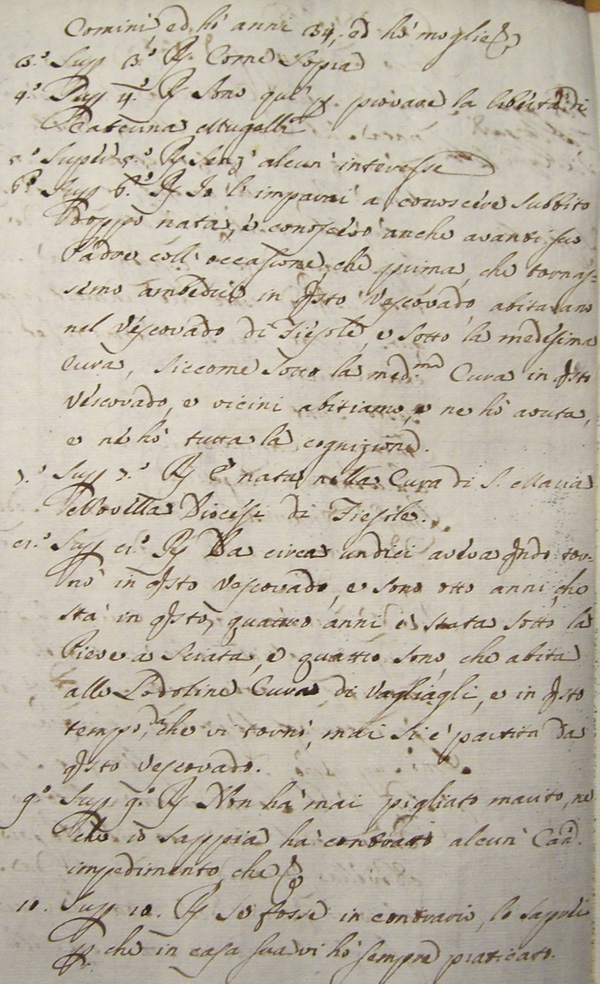 Comini, ed hò anni 34, ed hò moglie &
3.° Sup 3.° R Come sopra
4.° Sup 4.° R Sono qui p. provare la libertà di
Caterina Mugelli
5.° Sup 5.° R Senz' alcun' interesse
6.° Sup 6.° R Io l' imparai a conoscere subbito
doppo nata, e conoscevo anche avanti suo
Padre coll' occasione, che prima, che tornas-
simo ambedue in qsto Vescovado, abitavamo
nel Vescovado di Fiesole, e sotto la medesima
Cura, siccome sotto la med.ma Cura in qsto
Vescovado, e vicini abitiamo, e ne hò avuta,
e ne hò tutta la cognizione.
7.° Sup 7.° R È nata nella Cura di S. Maria
Novella Diocesi di Fiesole.
8.° Sup 8.° R Da circa undici aveva qndo tor-
nò in qsto Vescovado, e sono otto anni, che
stà in qsto, quattro anni è stata sotto la
Pieve a Sciata, e quattro sono che abita
alle Lodoline Cura di Vagliagli, e in qsto
tempo, che vi tornò, mai si è partita da
qsto Vescovado.
9.° Sup 9.° R Non hà mai pigliato marito, ne
che io sappia hà contratto alcun' Can.
impedimento, che &
10. Sup 10. R Se fosse in contrario, lo saprei
p. che in casa sua vi hò sempre praticato.